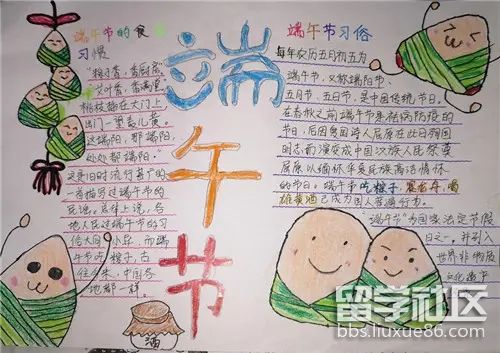 端午节的食
习惯
"粽子香，香厨房，
艾叶香，香满堂，
桃枝插在大门上，
出门一望麦儿黄。
这端阳，那端阳，
处处都端阳。"
这是旧时流行甚广的
一首描写过端午节的
民谣，总体上说，各
地人民过端午节的习
俗大同小异，而端
午节吃粽子，古
往今来，中国各
地都一样。
端
午
节
酒
端午节习俗
每年农历五月初五为
端午节，又称端阳节、
五月节、五日节，是中国传统节日。
在春秋之前端午节是祛病防疫的
节日，后因爱国诗人屈原在此日殉国
明志而演变成中国汉族人民祭奠
屈原以缅怀华夏民族高洁情怀
的节日。端午节吃粽子，赛龙舟，喝
雄黄酒已成为国人普遍行节。
"端午节"为国家法定节假
日之一，并列入
世界非物质
文化遗产
留学社区
bbs.liuxue86.com